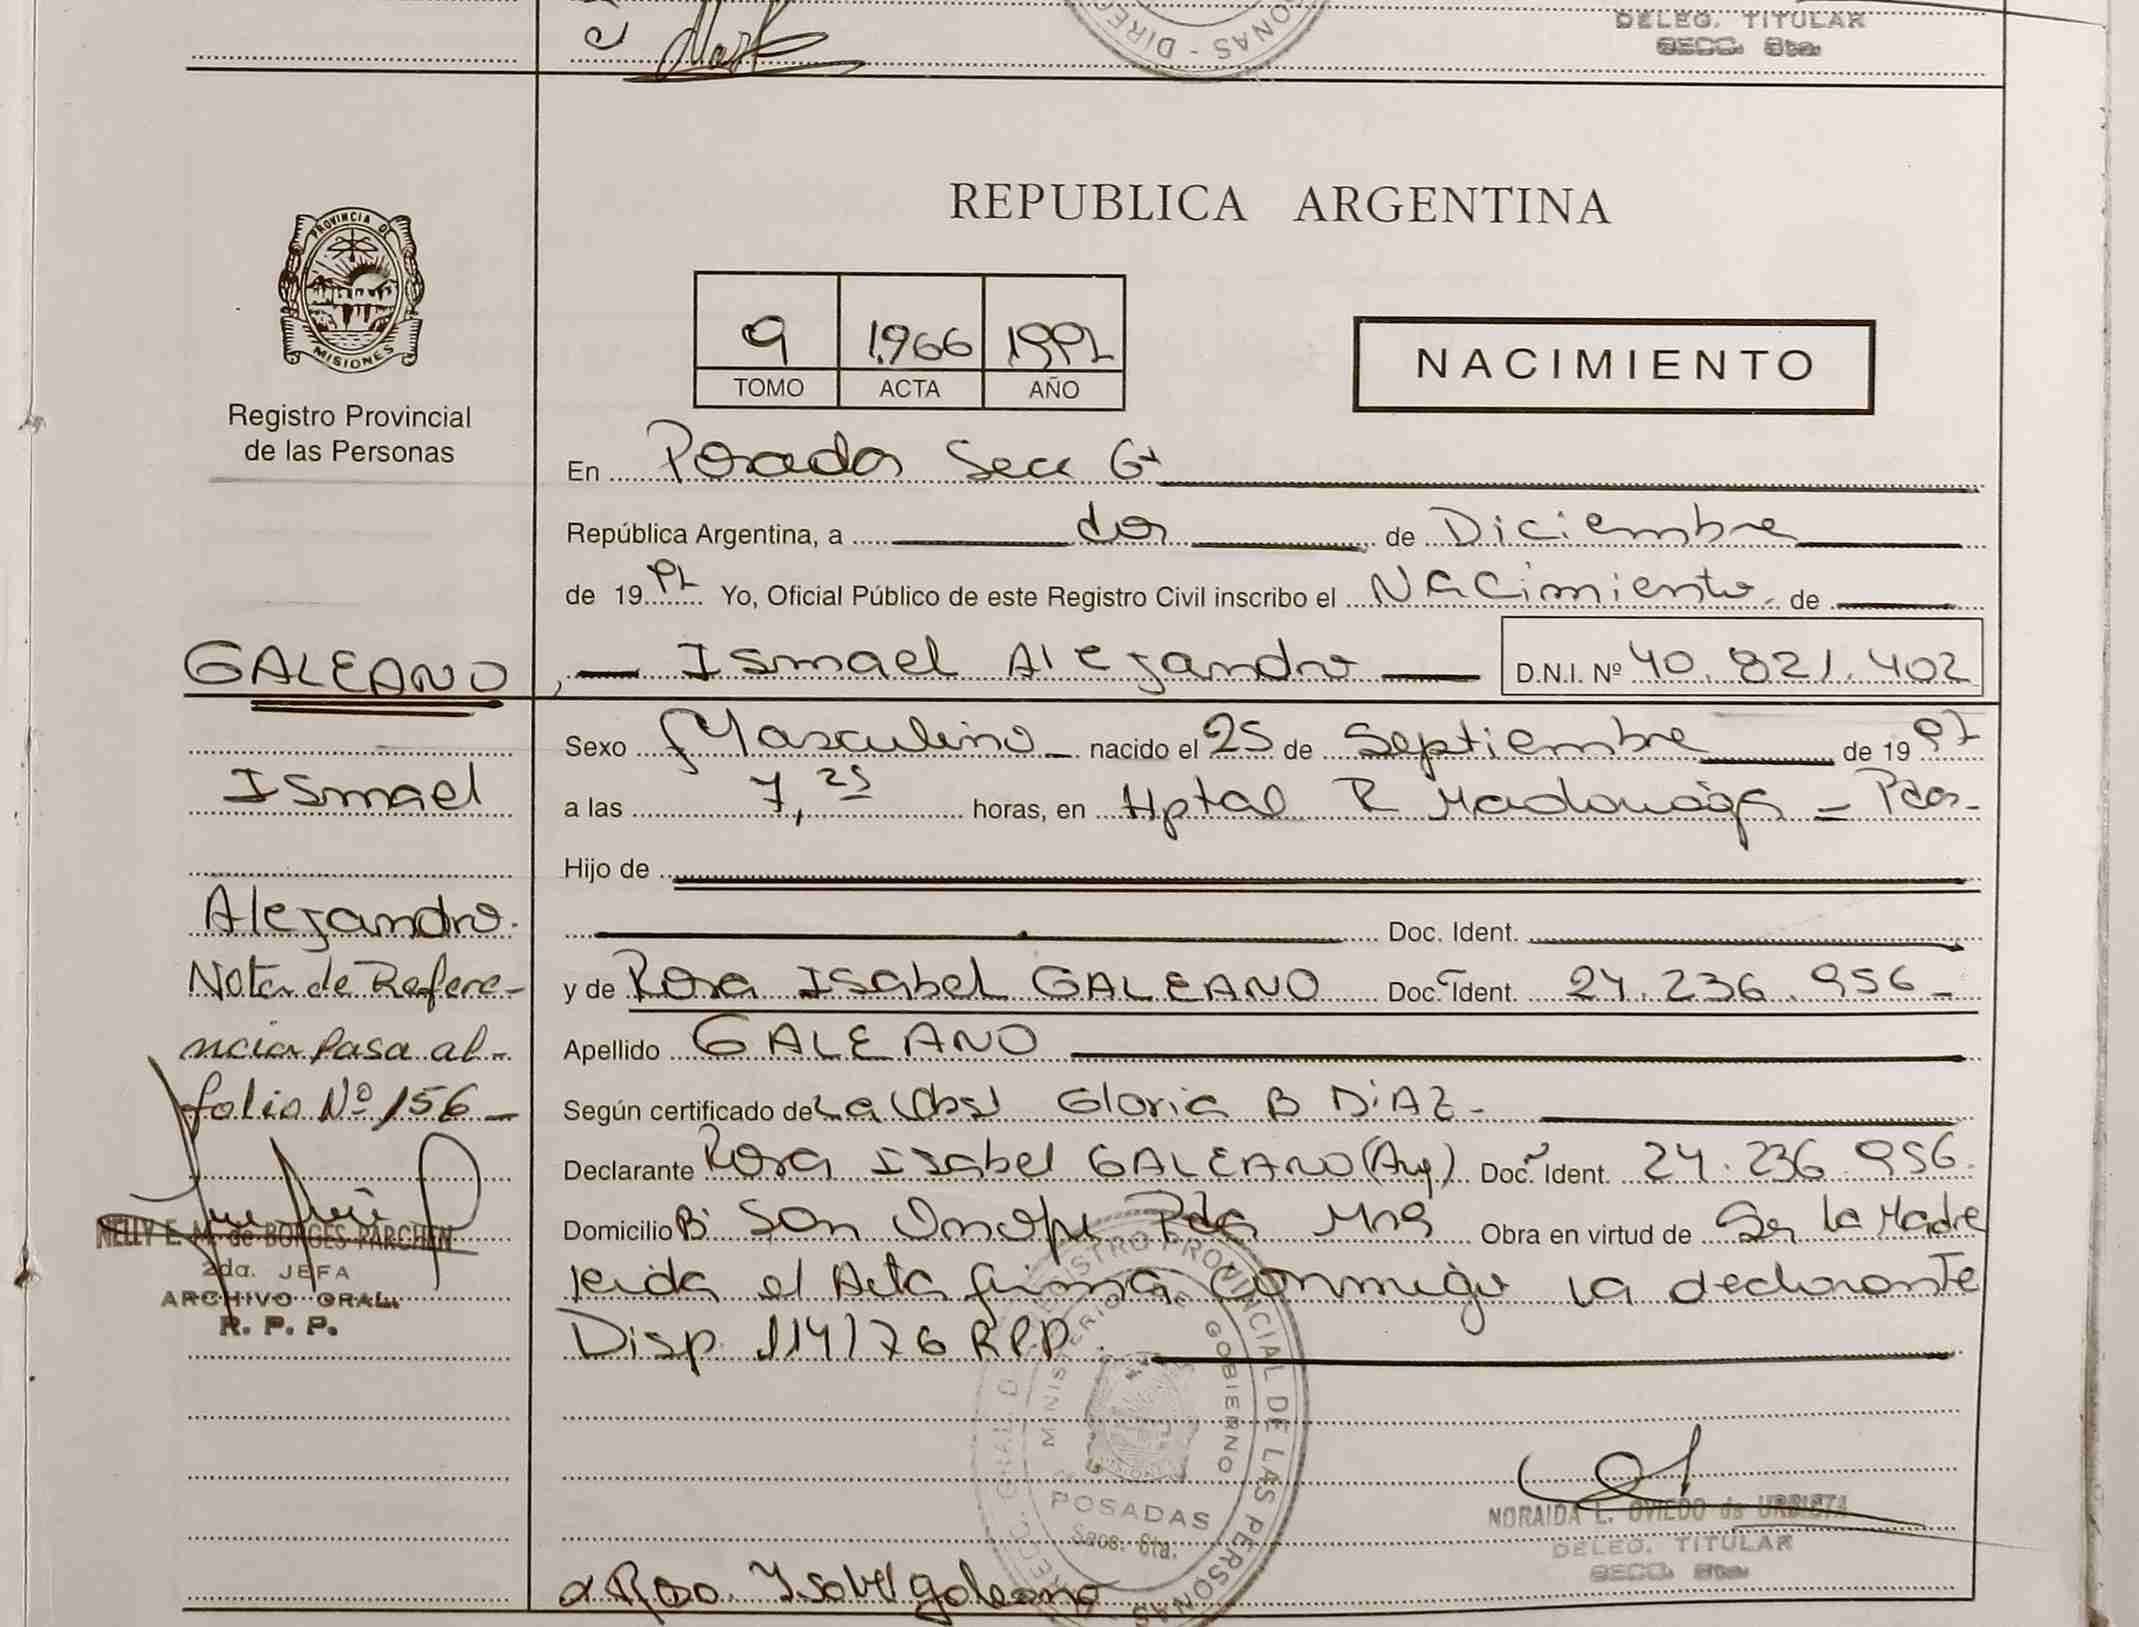 DIREC
ONAS - DIREC
DELEG. TITULAR
SECC. 6ta.
REPUBLICA ARGENTINA
PROVINCIA DE
MISIONES
Registro Provincial
de las Personas
9 1.966 1992
TOMO ACTA AÑO
NACIMIENTO
En Posadas Secc 6ª
República Argentina, a dos de Diciembre
de 1992 Yo, Oficial Público de este Registro Civil inscribo el Nacimiento de
GALEANO, Ismael Alejandro D.N.I. Nº 40.821.402
Sexo Masculino nacido el 25 de Septiembre de 1997
Ismael
a las 7,25 horas, en Hptal R Madariaga - Pdas-
Hijo de
Alejandro.
Doc. Ident.
Nota de Refere-
y de Rosa Isabel GALEANO Doc. Ident. 24.236.956-
ncia Pasa al-
Apellido GALEANO
folio Nº 156-
Según certificado de La (Obs) Gloria B DiAZ-
Declarante Rosa Isabel GALEANO (Arg) Doc. Ident. 24.236.956.
Domicilio Bº San Onofre Pdas Mnes Obra en virtud de Ser la Madre
NELLY E. M. de BORGES PARCHEN
2da. JEFA
ARCHIVO GRAL.
R. P. P.
leida el Acta firma conmigo la declarante
Disp 114/76 RPP.
REGISTRO PROVINCIAL DE LAS PERSONAS
MINISTERIO DE GOBIERNO
POSADAS
Secc. 6ta.
NORAIDA L. OVIEDO de URBIETA
DELEG. TITULAR
SECC. 6ta.
Rosa Isabel galeano